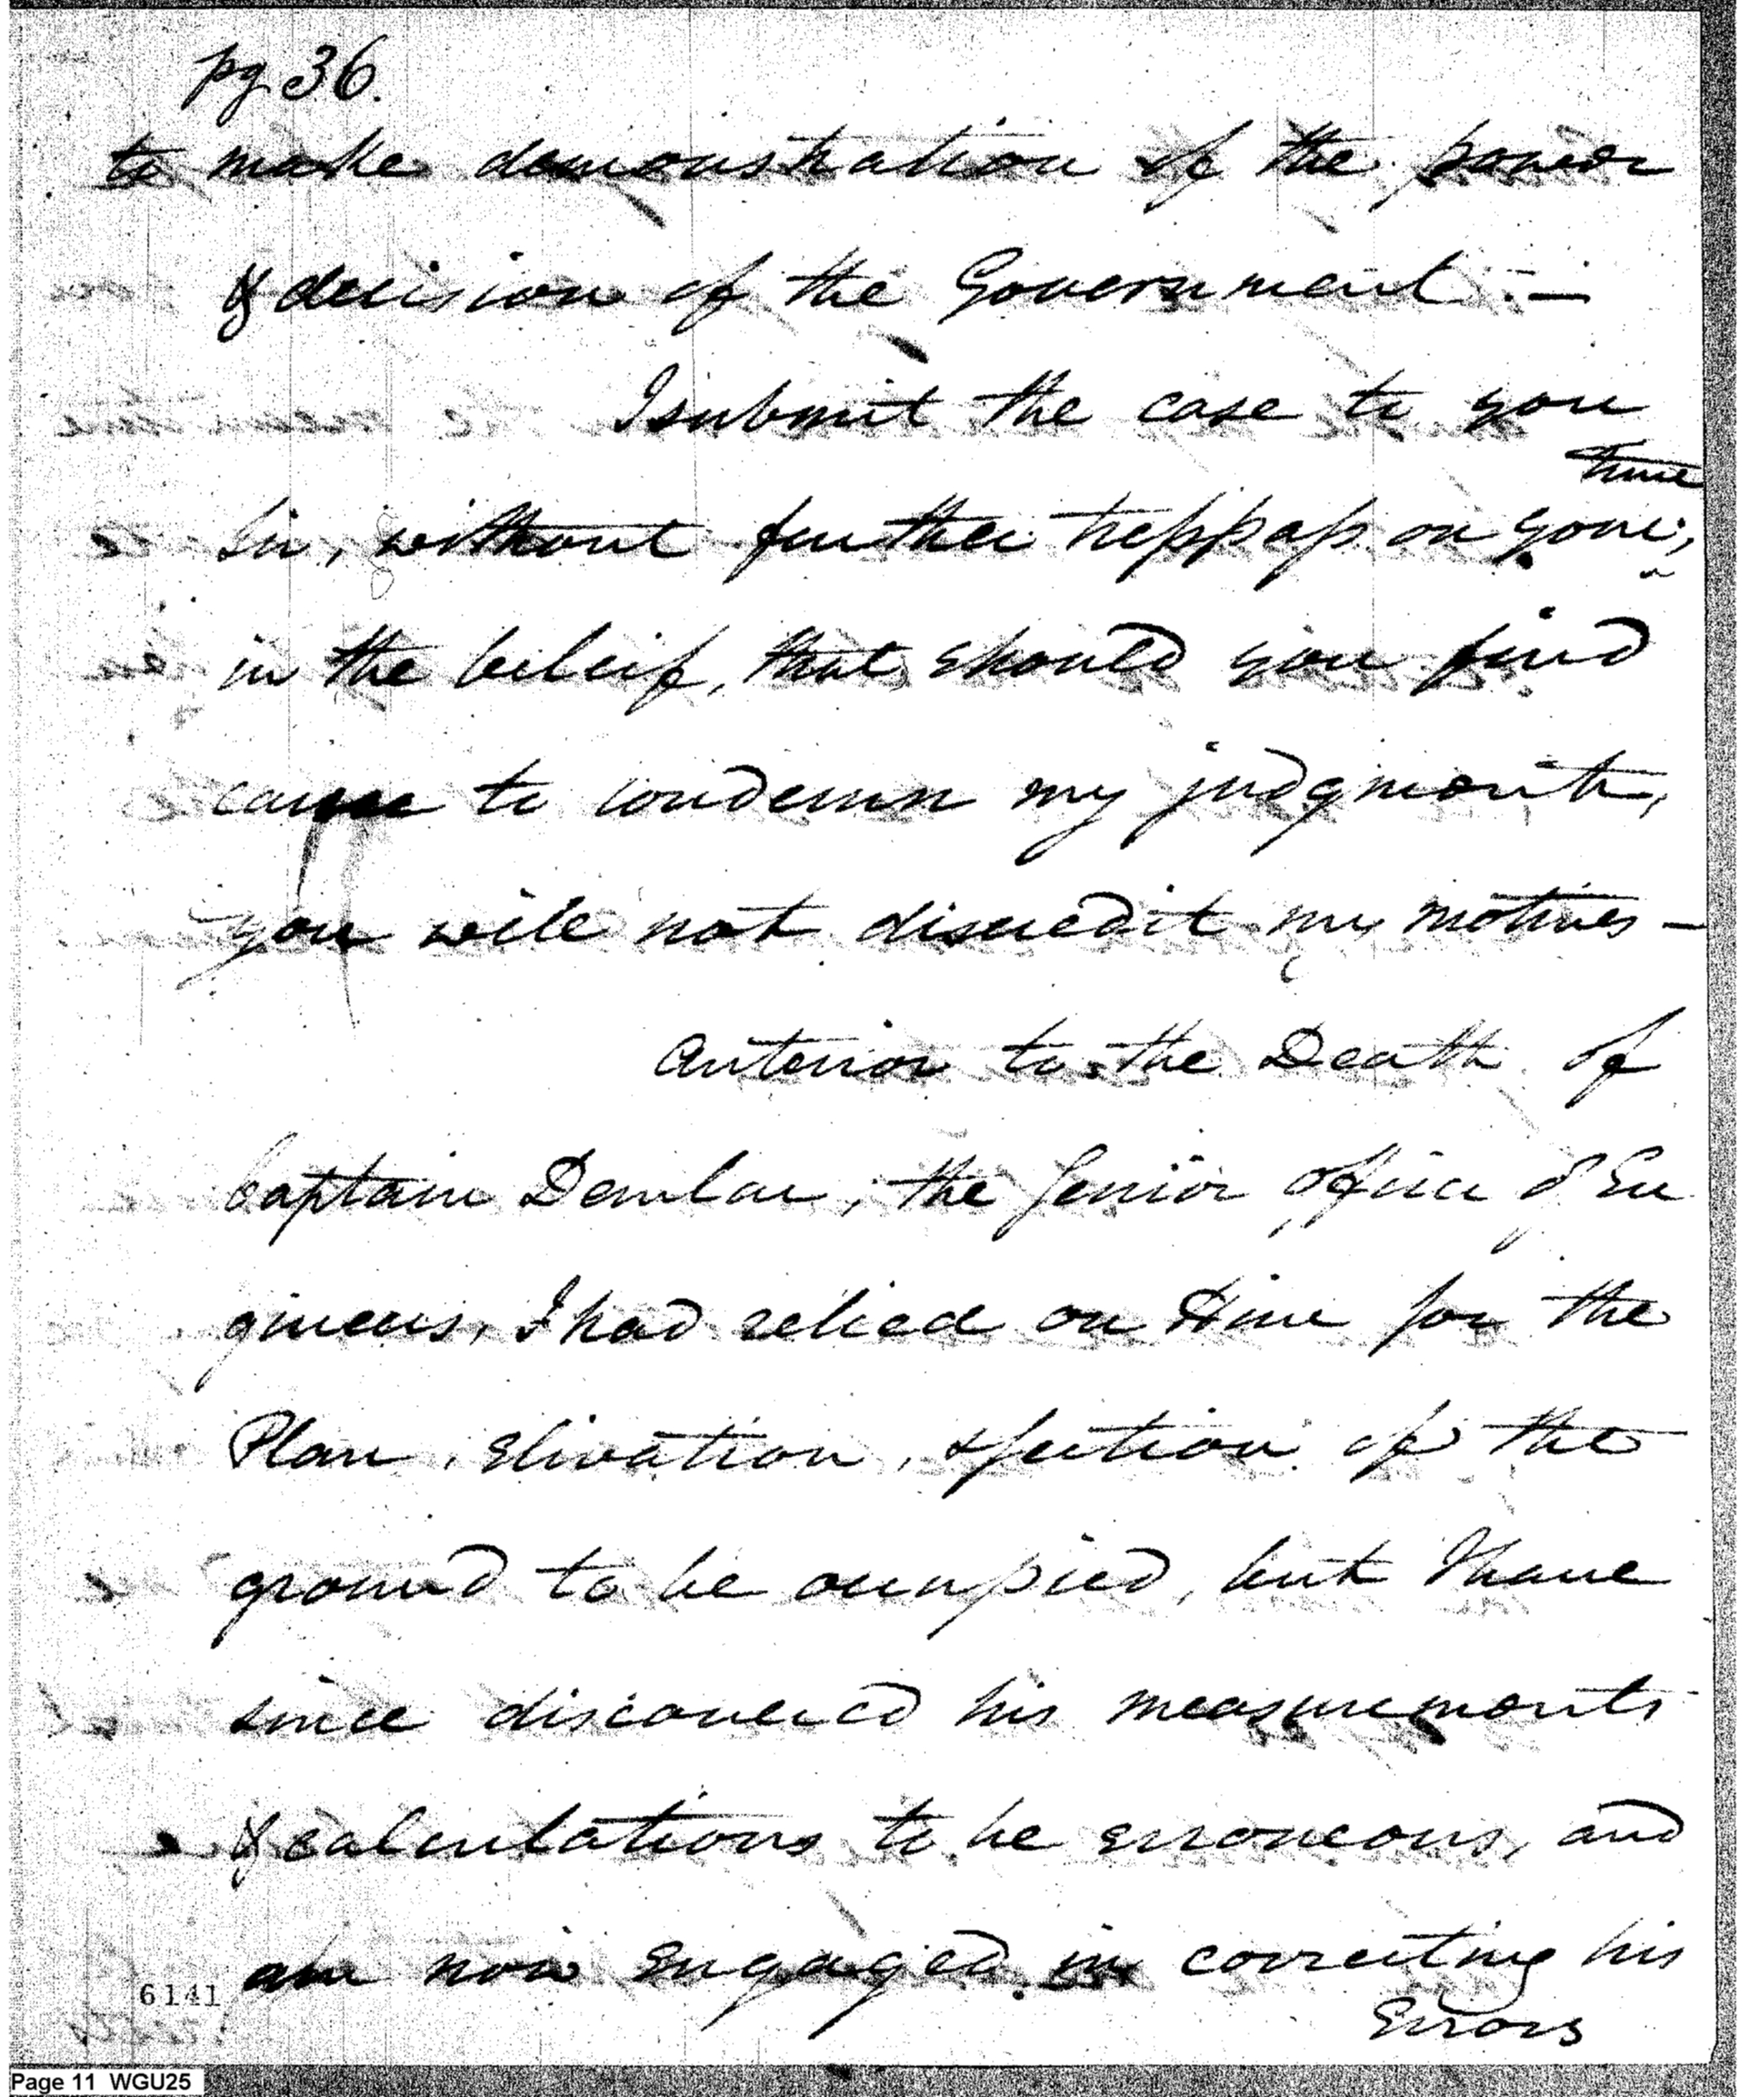 pg 36.
to make demonstration of the power
& decision of the Government. —
I submit the case to you
time
Sir, without further tresspass on your,
in the beleif, that should you find
cause to condemn my judgment,
you will not discredit my motives —
Anterior to the Death of
Captain Demlar, the Senior Officer of En
gineers, I had relied on Him for the
Plan, Elivation, & Section of the
ground to be occupied, but I have
since discovered his measurements
& calculations to be erroneous, and
am now Engaged in correcting his
Errors
6141
Page 11 WGU25